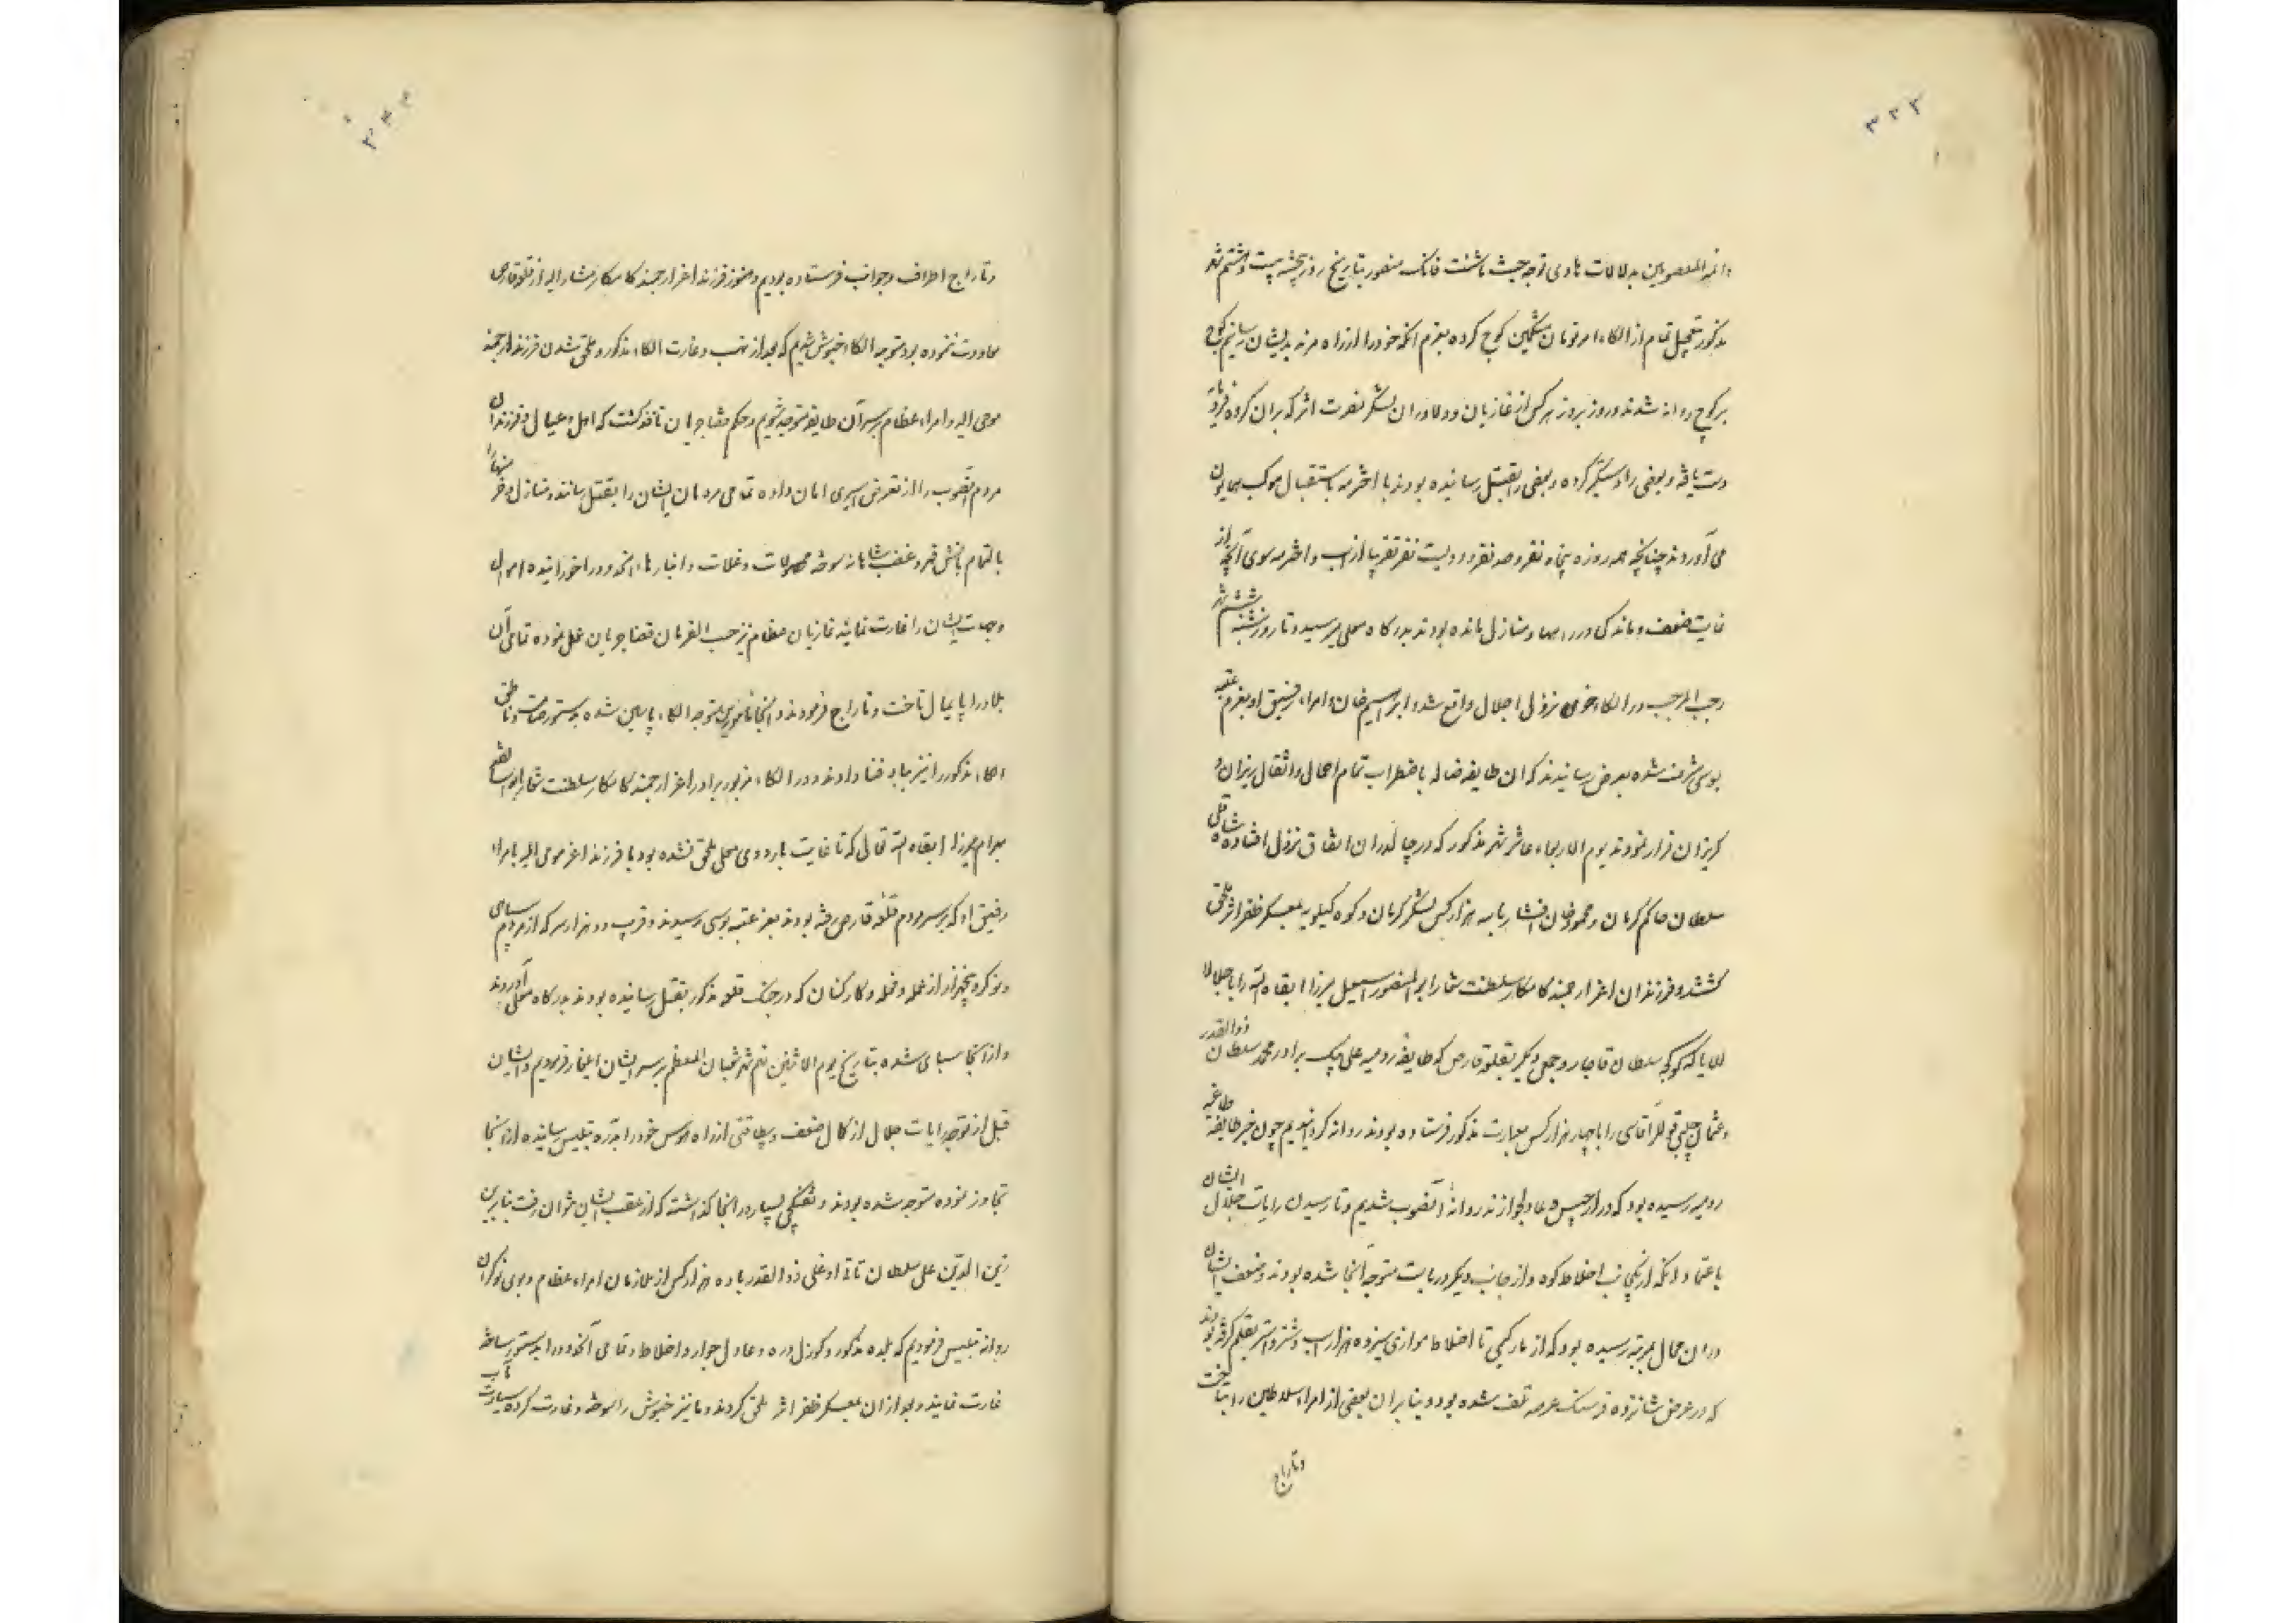 ۳۳۳
وائمه المعصومین بدلالات هادی توجه حیث ما شئت فانک منصور بتاریخ روز پنجشنبه بیست و هشتم شهر
مذکور بتعجیل تمام از الکاء امر تومان مشکین کوچ کرده بعزم انکه خود را از راه مرند بدیشان رسانیم کوچ
بر کوچ روانه شدند و روز بروز هر کس از غازیان و دلاوران لشکر نصرت اثر که بران کرده
دست یافته و بعضی را دستگیر کرده و بعضی را بقتل رسانیده بودند با اخترمه باستقبال موکب همایون
می آوردند چنانچه همه روزه پنجاه نفر و صد نفر و دویست نفر تقریبا از اسب و اخترمه سوی آنچه از
غایت ضعف و ماندگی در راهها و منازل مانده بودند بدرگاه معلی میرسید و تا روز شنبه ششم شهر
رجب المرجب در الکاء خوی نزول اجلال واقع شد و ابراهیم خان و امراء رفیق او بعزم عتبه
بوسی مشرف شده بعرض رسانیدند که ان طایفه ضاله باضطراب تمام احمال و اثقال ریزان و
کریزان فرار نمودند یوم الاربعاء عاشر شهر مذکور که در چالدران اتفاق نزول افتاده شاهقلی
سلطان حاکم کرمان و محمود خان افشار با سه هزار کس لشکر کرمان و کوه کیلویه بمعسکر ظفر اثر ملحق
کشتند و فرزندان اعز ارجمند کامکار سلطنت شعار ابو المنصور اسمعیل میرزا ابقاه الله را باجلالا
للایاکه کوکجه سلطان قاجار و جمعی دیگر بقلعه قارص که طایفه رومیه علی بیک برادر محمد سلطان ذوالقدر
و عثمان چلبی قوللر آقاسی را با چهار هزار کس بعمارت مذکور فرستاده بودند روانه کردانیدیم چون خبر طایفه طاغیه
رومیه رسیده بود که در ارجیس و عادلجوازند روانه آنصوب شدیم و تا رسیدن رایات جلال ایشان
باعتماد انکه از یکجانب اخلاط کوه و از جانب دیگر دریاست متوجه آنجا شده بودند و ضعف ایشان
دران حال بمرتبه رسیده بود که از بارکیری تا اخلاط موازی سیزده هزار اسب و شتر و استر بقلم کرفته بودند
که در عرض شانزده فرسنک عرصه تلف شده بود و بنا بران بعضی از امراء سلاطین را بتاخت
و تاراج
۳۳۴
و تاراج اطراف و جوانب فرستاده بودیم و هنوز فرزند اعز ارجمند کامکار مشار الیه از قلعه قارص
معاودت ننموده بود متوجه الکاء خنوش شدیم که بعد از نهب و غارت الکاء مذکور و ملحق شدن فرزند ارجمند
مومی الیه و امراء عظام بر سر آن طایفه متوجه شویم و حکم قضا جریان نافذ کشت که اهل و عیال و فرزندان
مردم آنصوب را از تعرض اسیری امان داده تمامی مردمان ایشان را بقتل رسانند و منازل و خرمنها را
بالتمام باتش قهر و غضب شاهانه سوخته محصولات و غلات و انبارهاء انحدود را خورانیده اموال
و جهات ایشان را غارت نمایند غازیان عظام نیز حسب الفرمان قضا جریان عمل نموده تمامی آن
بلاد را پایمال تاخت و تاراج فرمودند و متوجه الکاء پاسین شده بدستور صامت و ناطق
الکاء مذکور را نیز بباد فنا دادند و در الکاء مزبور برادر اعز ارجمند کامکار سلطنت شعار ابو الفتح
بهرام میرزا ابقاه الله تعالی که تا غایت باردوی معلی ملحق نشده بود با فرزند اعز مومی الیه با امراء
رفیق او که بر سر مردم قلعه قارص رفته بودند بعز عتبه بوسی رسیدند و قریب دو هزار سر که از مردم سپاهی
و نوکر بغیر از عمله و فعله و کارکنان که در جنک قلعه مذکور بقتل رسانیده بودند بدرگاه معلی آوردند
و از آنجا سپاهی شده بتاریخ یوم الاثنین نهم شهر شعبان المعظم بر سر ایشان ایلغار فرمودیم و ایشان
قبل از توجه رایات جلال از کمال ضعف و بیطاقتی از راه موس خود را بدره تبلیس رسانیده از آنجا
تجاوز نموده متوجه شده بودند و تفنکچی بسیار در آنجا کذاشته که از عقب ایشان نتوان رفت بنابرین
زین الدین علی سلطان تاتی اوغلی ذوالقدر با ده هزار کس از ملازمان امراء عظام و نوکران
روانه تبلیس فرمودیم که بلده مذکور و کوزل دره و عادل جواز و اخلاط و تمامی آنحدود را بدستور سابق
غارت نمایند و بعد ازان بمعسکر ظفر اثر ملحق کردند و ما نیز خنوش را سوخته و غارت کرده سیادت مآب